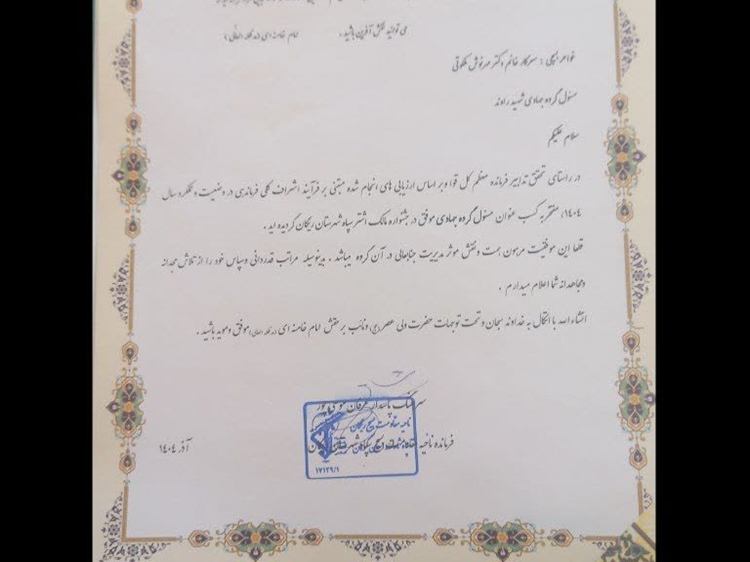 می توانید نقش آفرین باشید. امام خامنه ای (مدظله العالی)
خواهر بسیجی : سرکار خانم دکتر مهرنوش ملکوتی
مسئول گروه جهادی شهید راوند
سلام علیکم
در راستای تحقق تدابیر فرمانده معظم کل قوا و بر اساس ارزیابی های انجام شده مبتنی بر فرآیند اشراف کلی فرماندهی در وضعیت و عملکرد سال
۱۴۰۴، مفتخر به کسب عنوان مسئول گروه جهادی موفق در جشنواره مالک اشتر سپاه شهرستان ریگان گردیده اید .
قطعا این موفقیت مرهون همت و نقش موثر مدیریت جنابعالی در آن گروه میباشد . بدینوسیله مراتب قدردانی و سپاس خود را از تلاش مجدانه
ومجاهدانه شما اعلام میدارم .
انشاء الله با اتکال به خداوند سبحان و تحت توجهات حضرت ولی عصر(عج) و نائب بر حقش امام خامنه ای (مدظله العالی) موفق و موید باشید .
سرهنگ پاسدار عرفان موسی پور
فرمانده ناحیه مقاومت بسیج سپاه شهرستان ریگان
آذر ۱۴۰۴
۱۷۱۲۹/۱